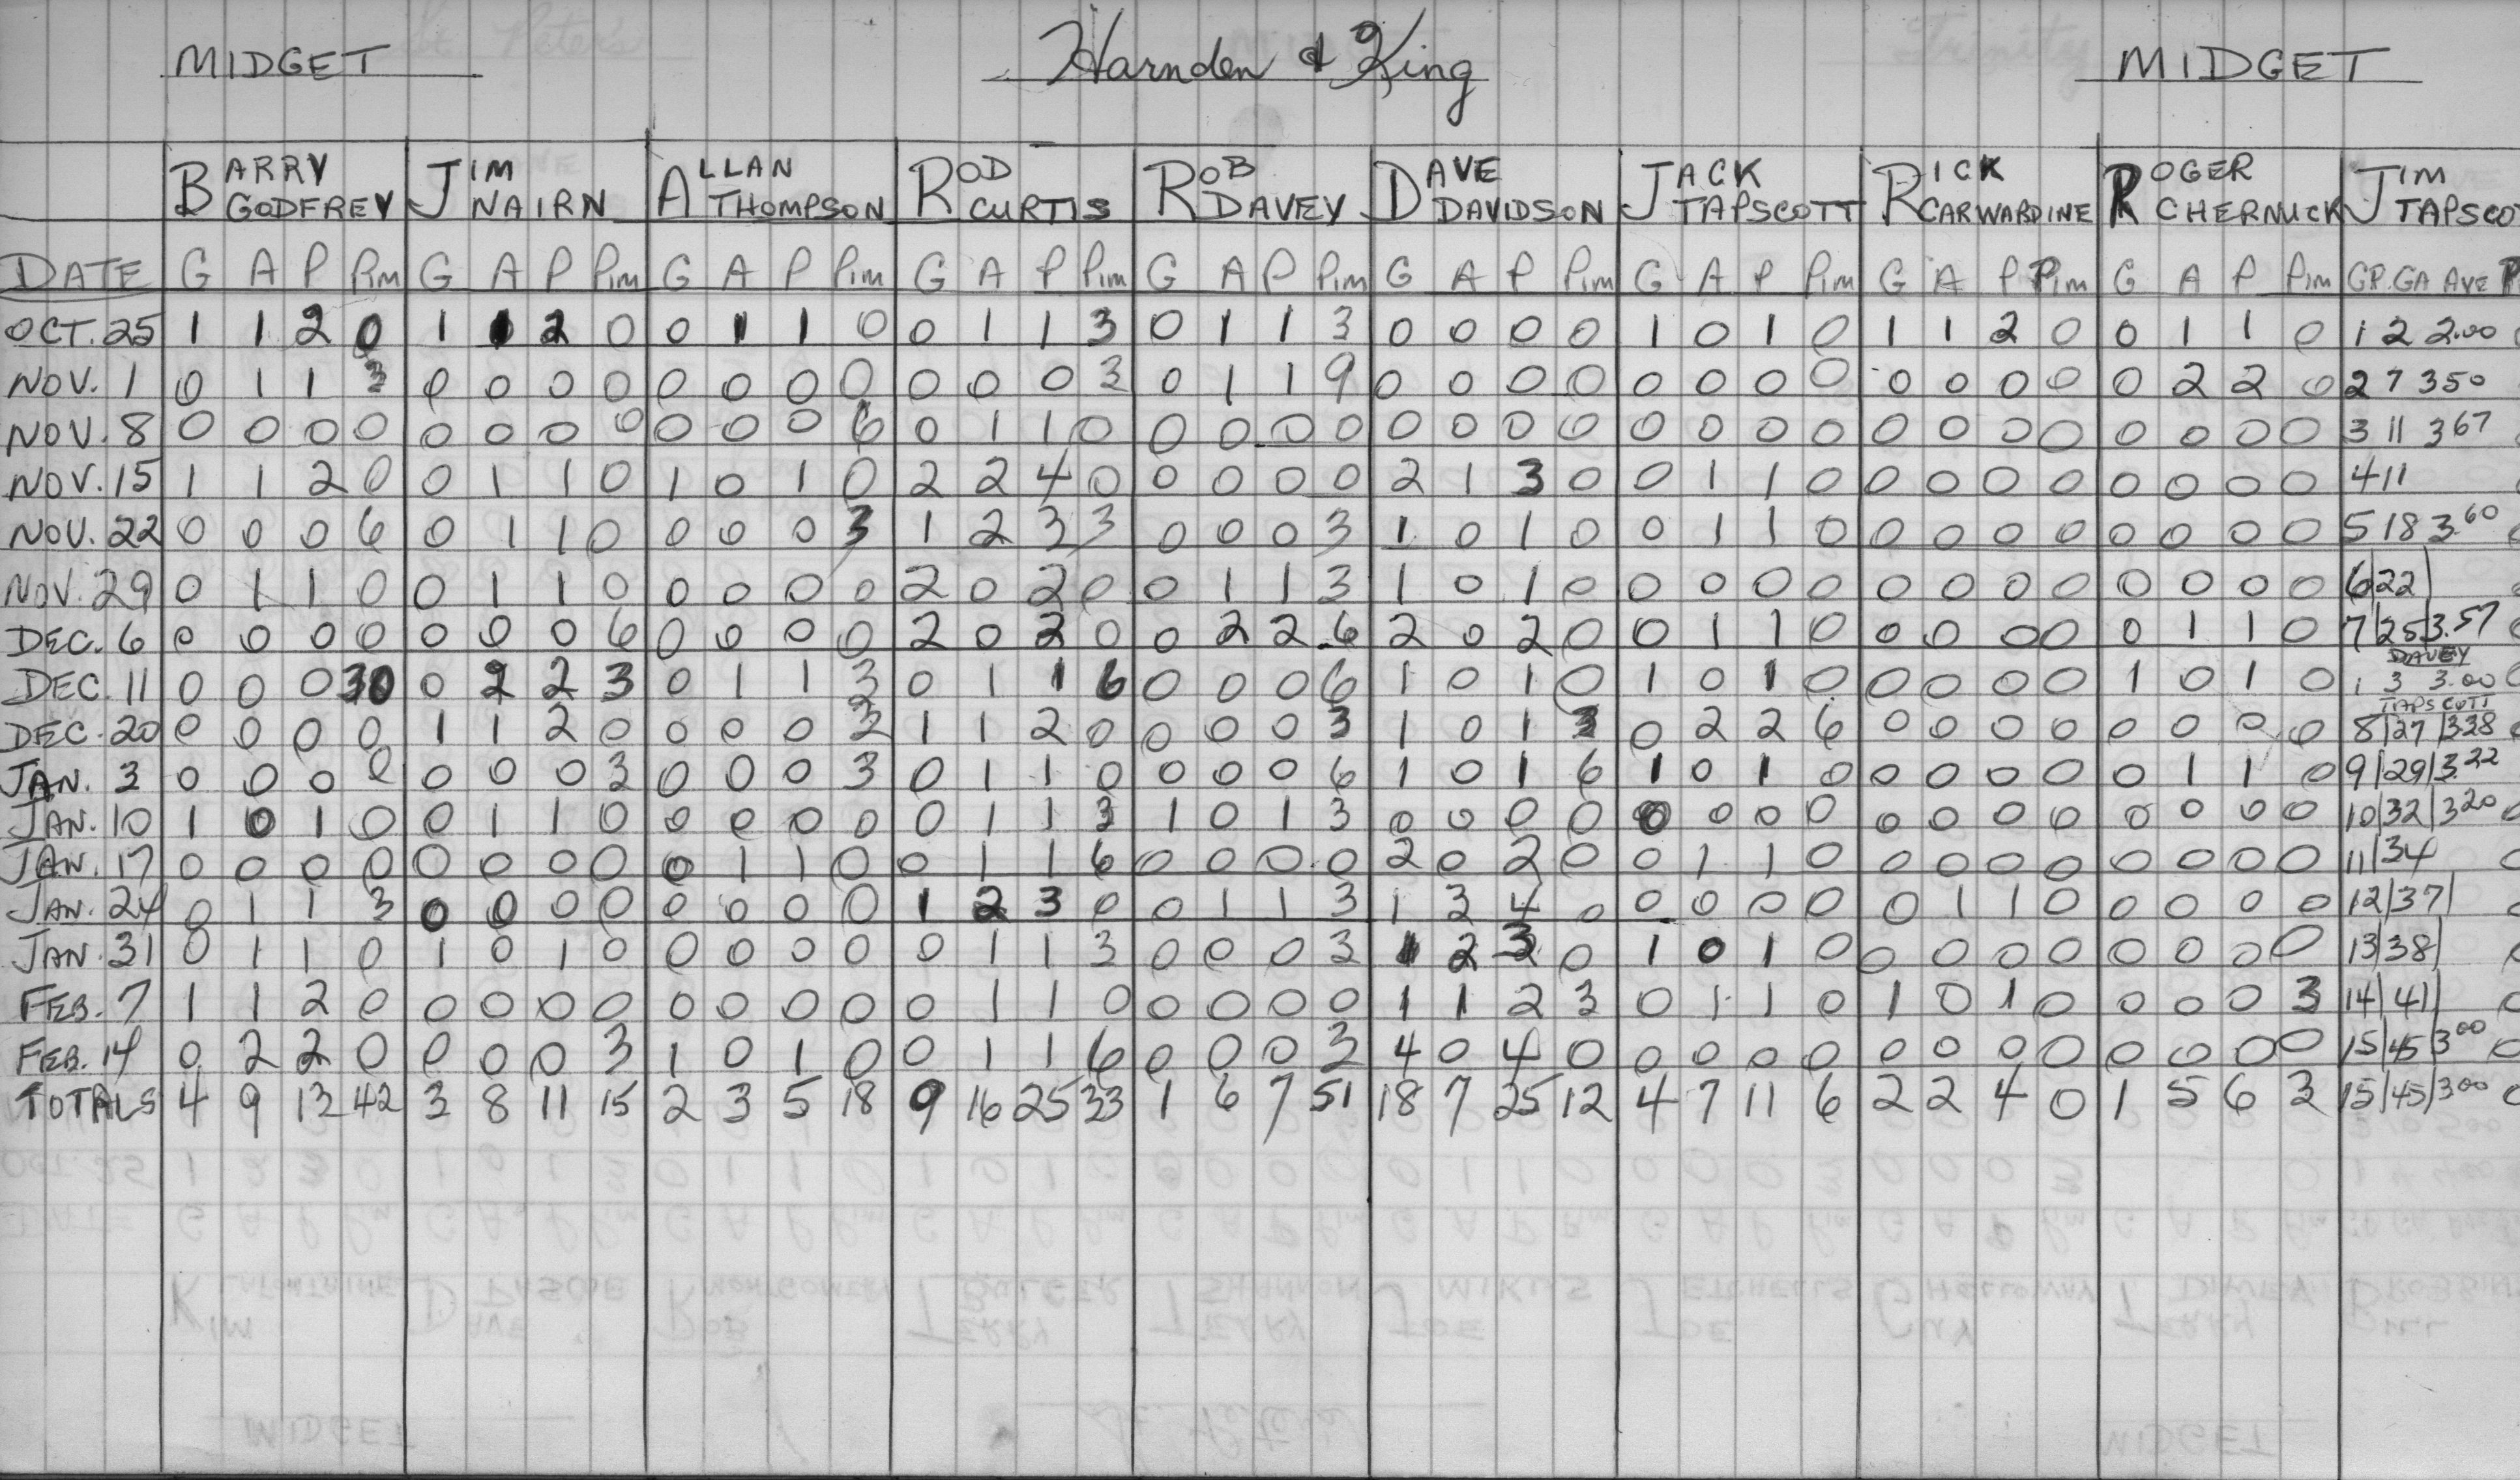 MIDGET Harnden & King MIDGET
BARRY GODFREY JIM NAIRN ALLAN THOMPSON ROD CURTIS ROB DAVEY DAVE DAVIDSON JACK TAPSCOTT RICK CARWARDINE ROGER CHERNUCK JIM TAPSCOT
DATE G A P Pim G A P Pim G A P Pim G A P Pim G A P Pim G A P Pim G A P Pim G A P Pim G A P Pim GP. GA AVE P
OCT. 25 1 1 2 0 1 1 2 0 0 1 1 0 0 1 1 3 0 1 1 3 0 0 0 0 1 0 1 0 1 1 2 0 0 1 1 0 1 2 2.00
NOV. 1 0 1 1 3 0 0 0 0 0 0 0 0 0 0 0 3 0 1 1 9 0 0 0 0 0 0 0 0 0 0 0 0 0 2 2 0 2 7 350
NOV. 8 0 0 0 0 0 0 0 0 0 0 0 6 0 1 1 0 0 0 0 0 0 0 0 0 0 0 0 0 0 0 0 0 0 0 0 0 3 11 367
NOV. 15 1 1 2 0 0 1 1 0 1 0 1 0 2 2 4 0 0 0 0 0 2 1 3 0 0 1 1 0 0 0 0 0 0 0 0 0 4 11
NOV. 22 0 0 0 6 0 1 1 0 0 0 0 3 1 2 3 3 0 0 0 3 1 0 1 0 0 1 1 0 0 0 0 0 0 0 0 0 5 18 3.60
NOV. 29 0 1 1 0 0 1 1 0 0 0 0 0 2 0 2 0 0 1 1 3 1 0 1 0 0 0 0 0 0 0 0 0 0 0 0 0 6|22|
DEC. 6 0 0 0 0 0 0 0 6 0 0 0 0 2 0 2 0 0 2 2 6 2 0 2 0 0 1 1 0 0 0 0 0 0 1 1 0 7|25|3.57
DAVEY
DEC. 11 0 0 0 30 0 2 2 3 0 1 1 3 0 1 1 6 0 0 0 6 1 0 1 0 1 0 1 0 0 0 0 0 1 0 1 0 1 3 3.00
TAPSCOTT
DEC. 20 0 0 0 0 1 1 2 0 0 0 0 3 1 1 2 0 0 0 0 3 1 0 1 3 0 2 2 6 0 0 0 0 0 0 0 0 8|27|338
JAN. 3 0 0 0 0 0 0 0 3 0 0 0 3 0 1 1 0 0 0 0 6 1 0 1 6 1 0 1 0 0 0 0 0 0 1 1 0 9|29|3.22
JAN. 10 1 0 1 0 0 1 1 0 0 0 0 0 0 1 1 3 1 0 1 3 0 0 0 0 0 0 0 0 0 0 0 0 0 0 0 0 10|32|320
JAN. 17 0 0 0 0 0 0 0 0 0 1 1 0 0 1 1 6 0 0 0 0 2 0 2 0 0 1 1 0 0 0 0 0 0 0 0 0 11|34
JAN. 24 0 1 1 3 0 0 0 0 0 0 0 0 1 2 3 0 0 1 1 3 1 3 4 0 0 0 0 0 0 1 1 0 0 0 0 0 12|37|
JAN. 31 0 1 1 0 1 0 1 0 0 0 0 0 0 1 1 3 0 0 0 3 1 2 3 0 1 0 1 0 0 0 0 0 0 0 0 0 13|38|
FEB. 7 1 1 2 0 0 0 0 0 0 0 0 0 0 1 1 0 0 0 0 0 1 1 2 3 0 1 1 0 1 0 1 0 0 0 0 3 14|41|
FEB. 14 0 2 2 0 0 0 0 3 1 0 1 0 0 1 1 6 0 0 0 3 4 0 4 0 0 0 0 0 0 0 0 0 0 0 0 0 15|45|300
TOTALS 4 9 13 42 3 8 11 15 2 3 5 18 9 16 25 33 1 6 7 51 18 7 25 12 4 7 11 6 2 2 4 0 1 5 6 3 15|45|300